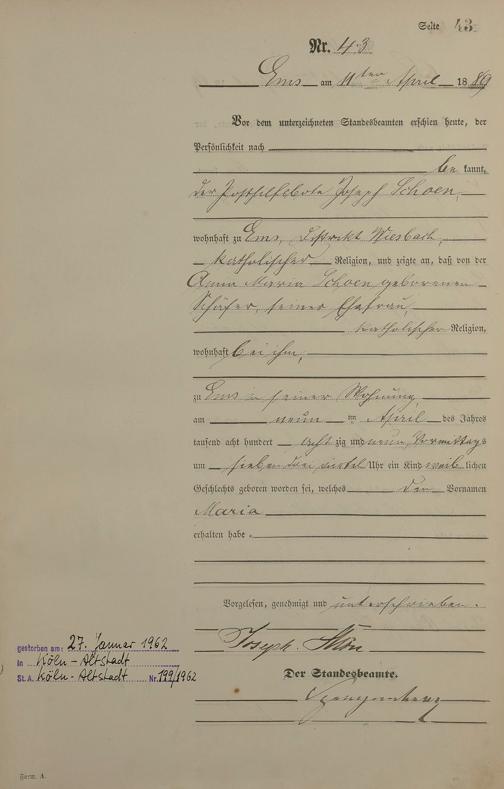 Seite 43
Nr. 43
Ems am 11ten April 1889
Vor dem unterzeichneten Standesbeamten erschien heute, der
Persönlichkeit nach
be kannt,
der Posthilfsbote Joseph Schoen,
wohnhaft zu Ems, Distrikt Wiesbach,
katholischer Religion, und zeigte an, daß von der
Anna Maria Schoen geborenen
Schäfer, seiner Ehefrau,
katholischer Religion,
wohnhaft bei ihm,
zu Ems in seiner Wohnung
am neun ten April des Jahres
tausend acht hundert acht zig und neun, Vormittags
um sieben drei viertel Uhr ein Kind weib lichen
Geschlechts geboren worden sei, welches den Vornamen
Maria
erhalten habe.
Vorgelesen, genehmigt und unterschrieben.
Joseph Schön
Der Standesbeamte.
gestorben am: 27. Januar 1962
in Köln-Altstadt
St.A. Köln-Altstadt Nr. 199/1962
Form. A.